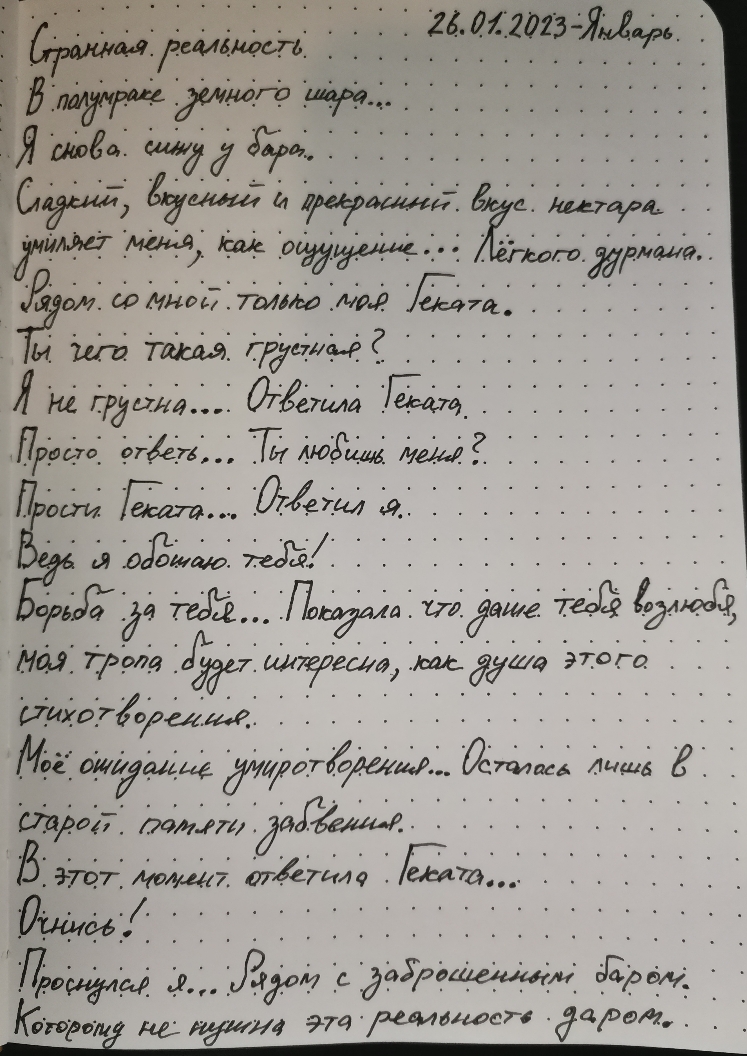 26.01.2023-Январь
Странная реальность
В полумраке земного шара...
Я снова сижу у бара.
Сладкий, вкусный и прекрасный вкус нектара
умиляет меня, как ощущение... Лёгкого дурмана.
Рядом со мной только моя Геката.
Ты чего такая грустная?
Я не грустна... Ответила Геката.
Просто ответь... Ты любишь меня?
Прости Геката... Ответил я.
Ведь я обожаю тебя!
Борьба за тебя... Показала что даже тебя возлюбя,
моя тропа будет интересна, как душа этого
стихотворения.
Моё ожидание умиротворения... Осталась лишь в
старой памяти забвения.
В этот момент ответила Геката...
Очнись!
Проснулся я... Рядом с заброшенным баром.
Которому не нужна эта реальность даром.